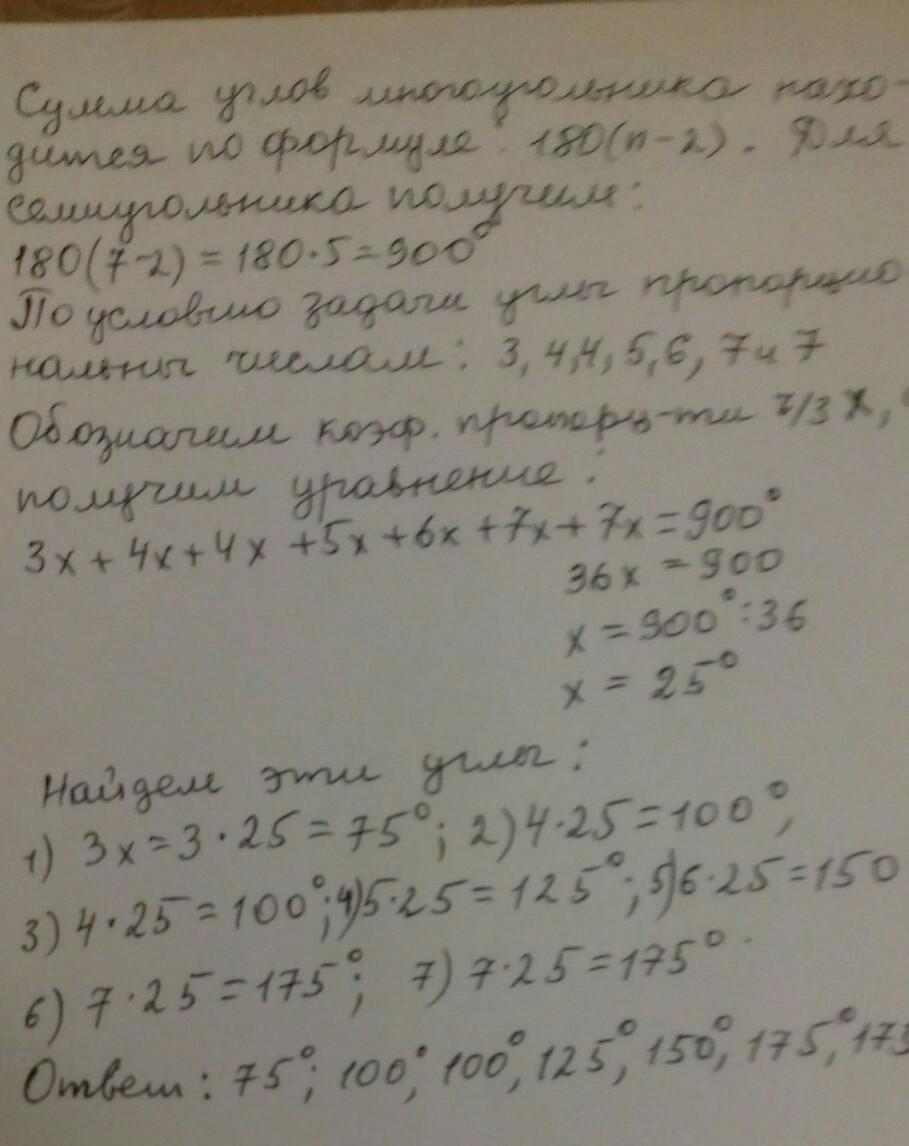 Сумма углов многоугольника нахо-
дится по формуле: 180(n-2). Для
семиугольника получим:
180(7-2)=180·5=900°
По условию задачи углы пропорцио
нальны числам: 3, 4,4, 5,6, 7 и 7
Обозначим коэф. пропорц-ти ч/з х,
получим уравнение:
3х+4х+4х+5х+6х+7х+7х=900°
36х=900
х=900°:36
х=25°
Найдем эти углы:
1) 3х=3·25=75°; 2)4·25=100°,
3)4·25=100°;4)5·25=125°;5)6·25=150
6) 7·25=175°; 7) 7·25=175°.
Ответ: 75°; 100°, 100°, 125°, 150°, 175°, 175